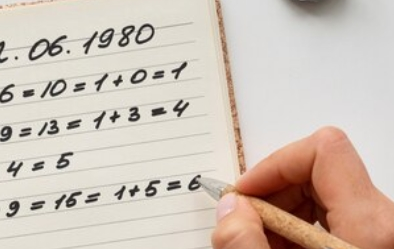 2. 06. 1980
6 = 10 = 1 + 0 = 1
9 = 13 = 1 + 3 = 4
4 = 5
9 = 15 = 1+5 = 6